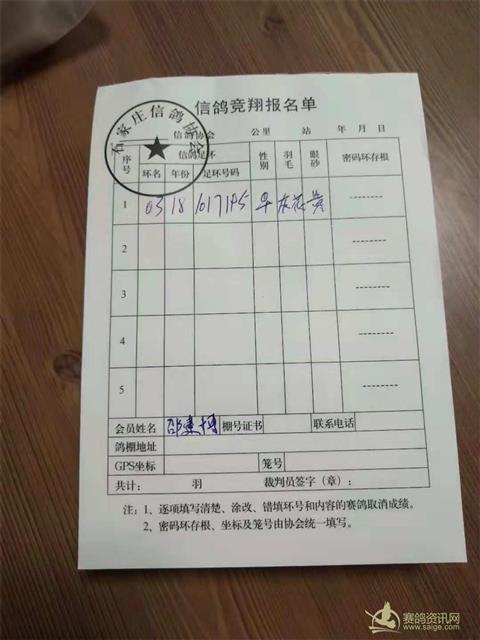 信鸽竞翔报名单
石家庄信鸽协会
信鸽协会 公里 站 年 月 日
序号 信鸽足环 性别 羽毛 眼砂 密码环存根
环名 年份 足环号码
1 03 18 灰花 黄 --------
2 --------
3 --------
4 --------
5 --------
会员姓名 邵建博 棚号证书 联系电话
鸽棚地址
GPS坐标 笼号
共计： 羽 裁判员签字（章）：
注：1、逐项填写清楚、涂改、错填环号和内容的赛鸽取消成绩。
2、密码环存根、坐标及笼号由协会统一填写。
赛鸽资讯网
www.saige.com